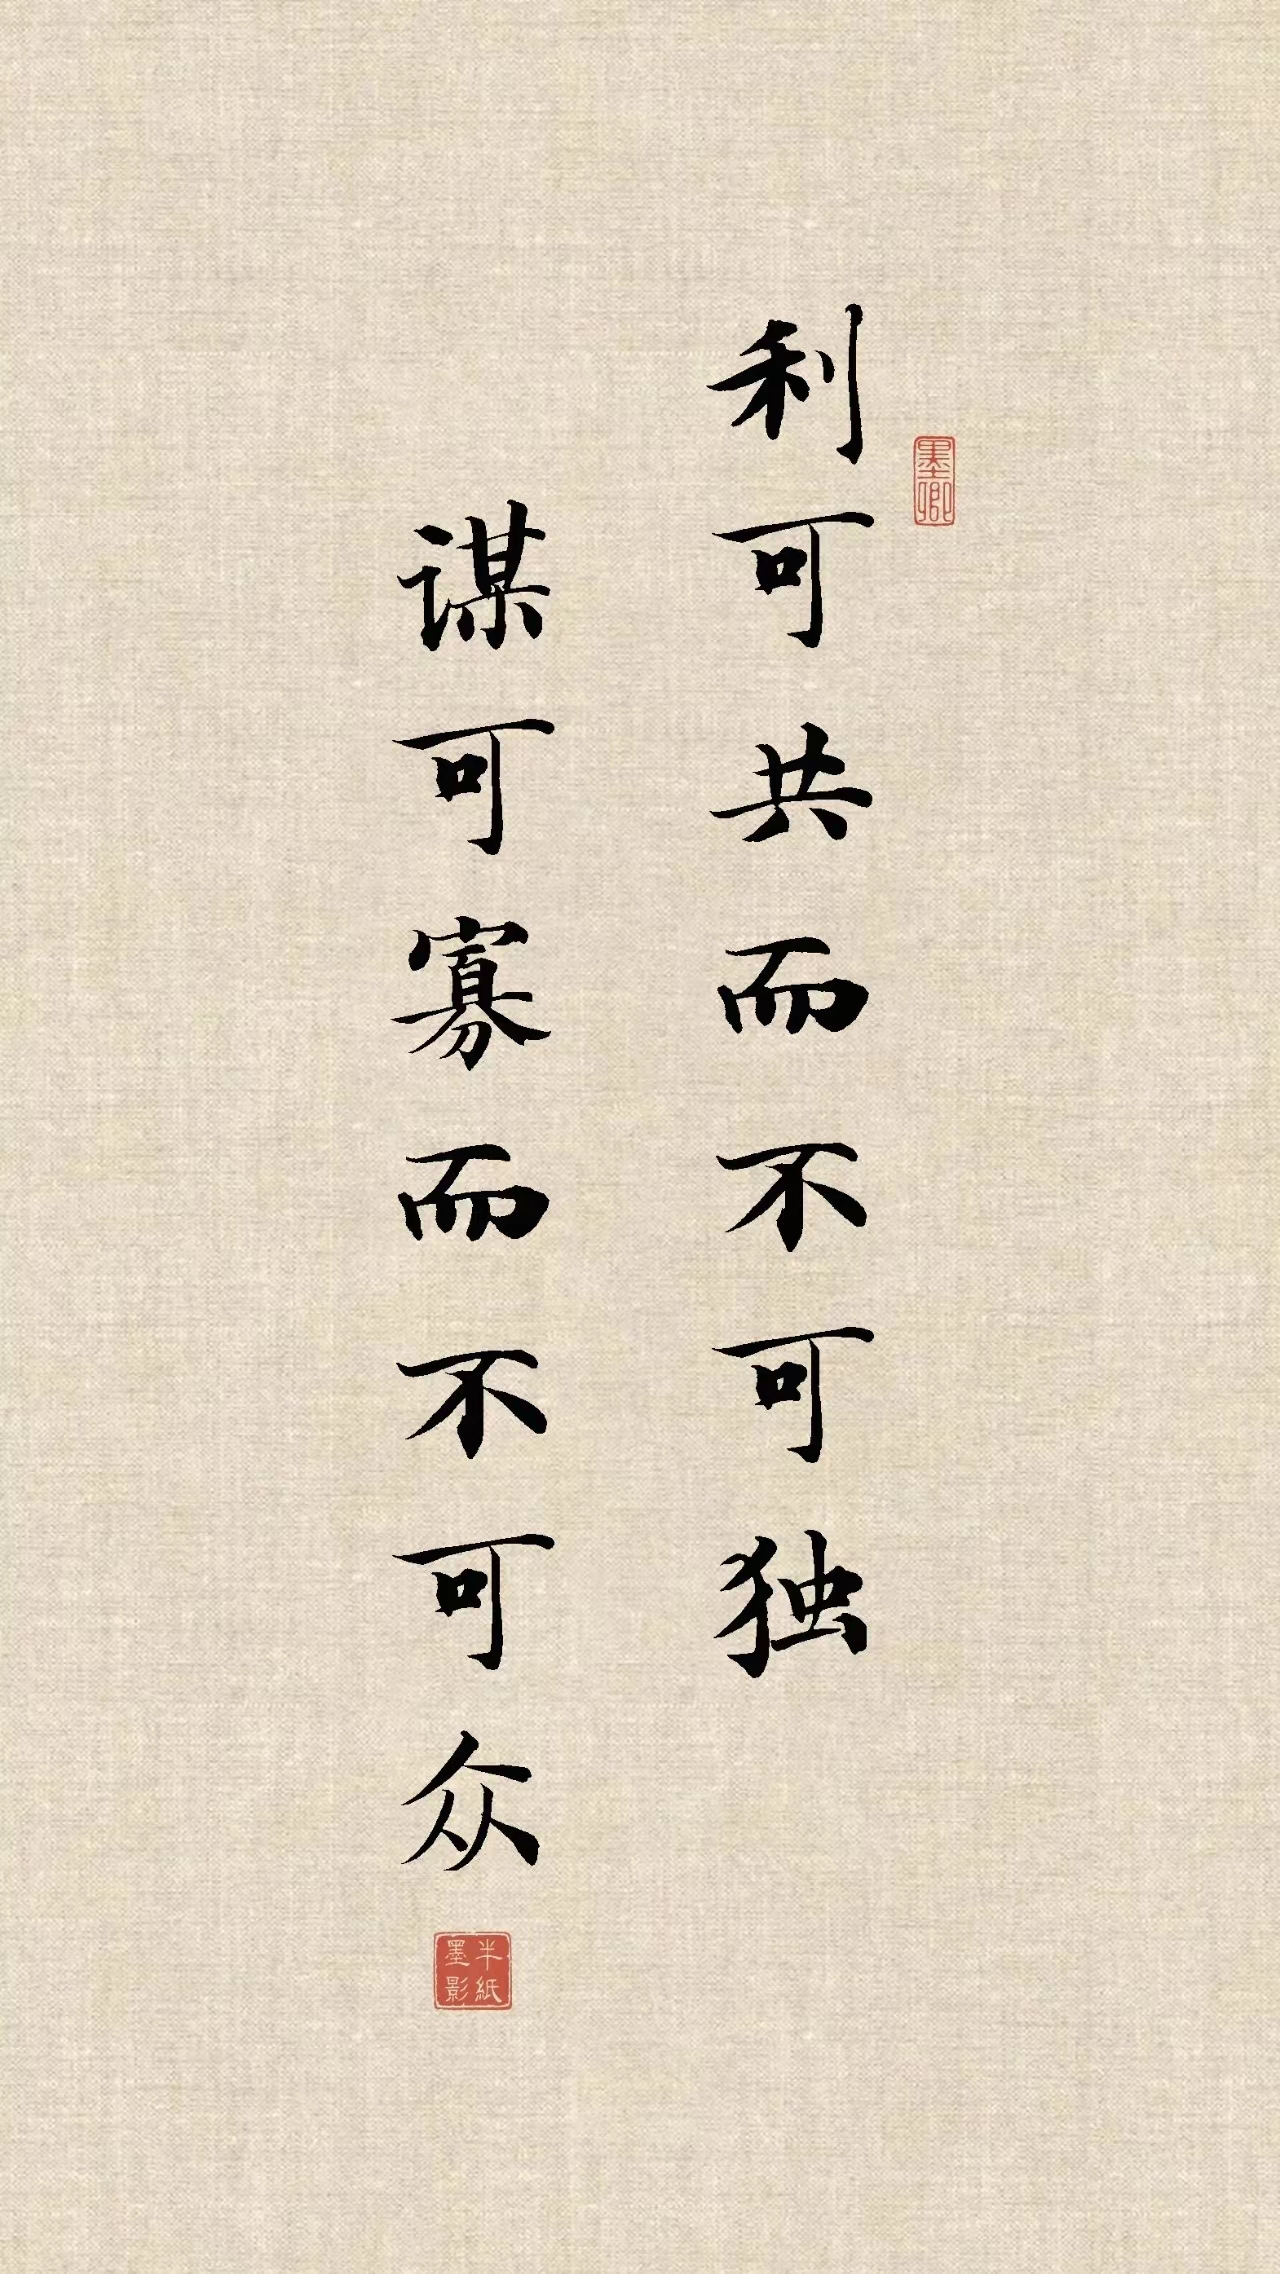 利可共而不可独
谋可寡而不可众
墨卿
半紙
墨影